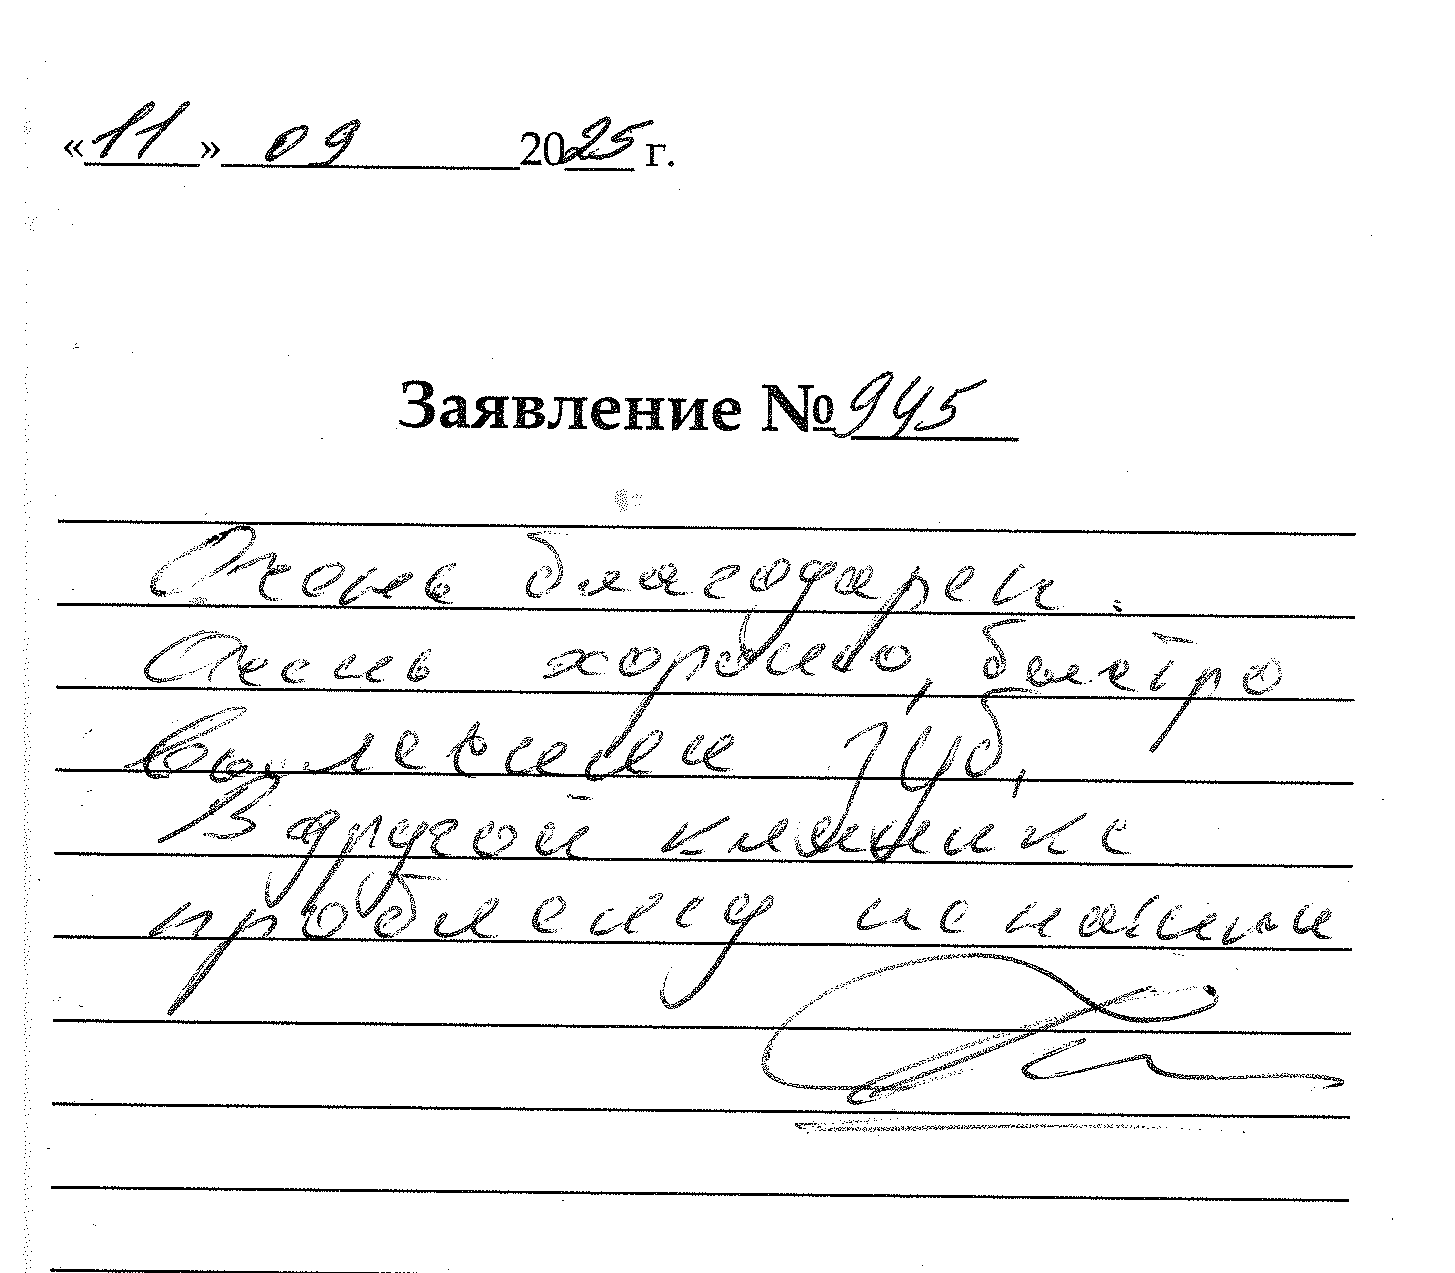 «11» 09 2025 г.
Заявление № 945
Очень благодарен.
Очень хорошо, быстро
вылечили зуб,
В другой клинике
проблему не нашли